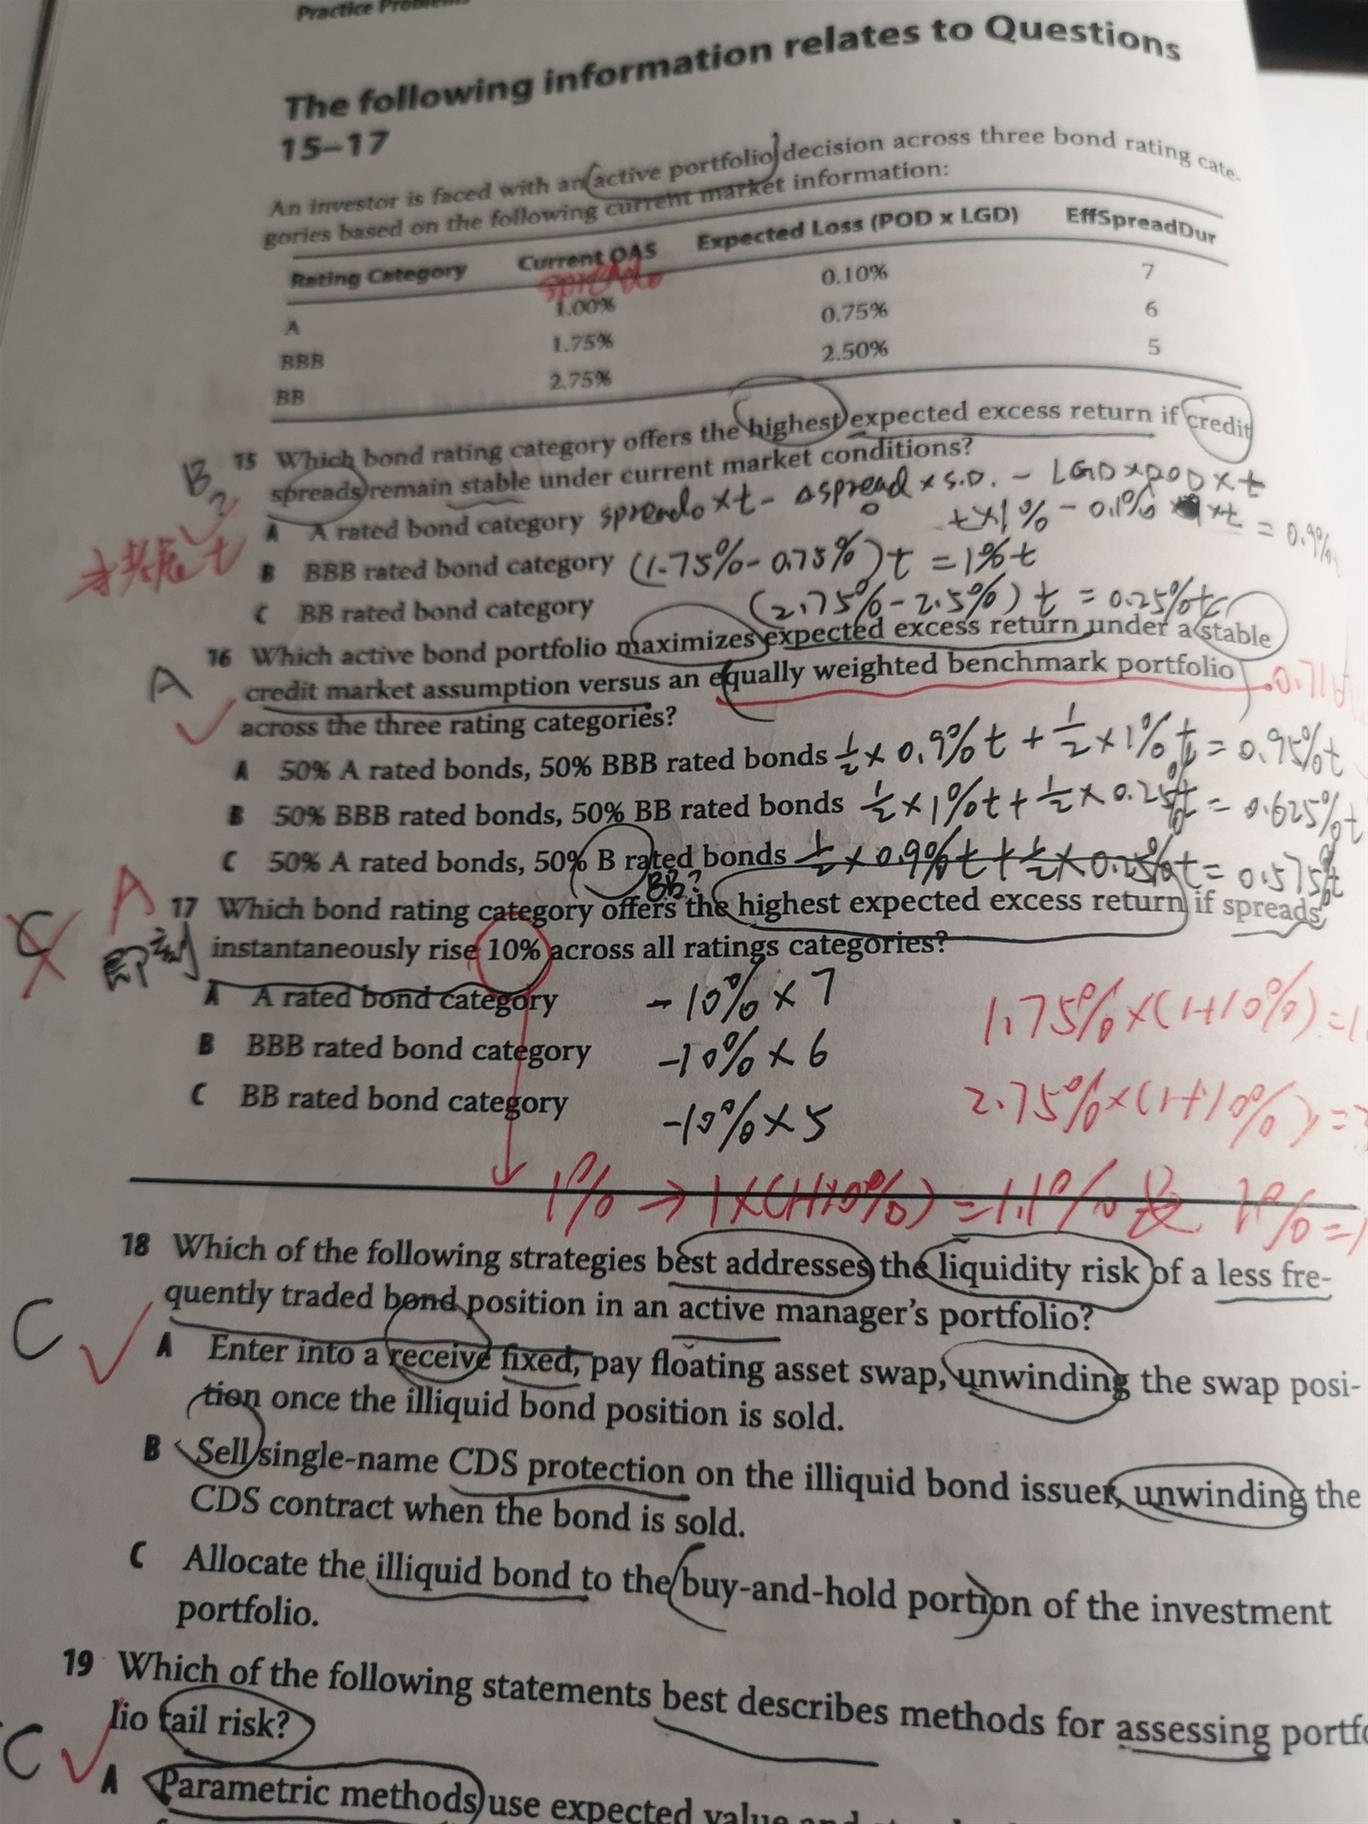 Practice Problems
The following information relates to Questions
15–17
An investor is faced with an active portfolio decision across three bond rating cate-
gories based on the following current market information:
Rating Category Current OAS Expected Loss (POD x LGD) EffSpreadDur
spread0
A 1.00% 0.10% 7
BBB 1.75% 0.75% 6
BB 2.75% 2.50% 5
B
15 Which bond rating category offers the highest expected excess return if credit
spreads remain stable under current market conditions?
A A rated bond category spread0 × t - Δspread × S.D. - LGD × POD × t
0
t×1% - 0.1% × t = 0.9%
B BBB rated bond category (1.75% - 0.75%)t = 1%t
C BB rated bond category (2.75% - 2.5%)t = 0.25%t
A
16 Which active bond portfolio maximizes expected excess return under a stable
credit market assumption versus an equally weighted benchmark portfolio
across the three rating categories?
A 50% A rated bonds, 50% BBB rated bonds ½ × 0.9%t + ½ × 1%t = 0.95%t
B 50% BBB rated bonds, 50% BB rated bonds ½ × 1%t + ½ × 0.25%t = 0.625%t
C 50% A rated bonds, 50% B rated bonds ½ × 0.9%t + ½ × 0.25%t = 0.575%t
BB?
C A
17 Which bond rating category offers the highest expected excess return if spreads
即刻 instantaneously rise 10% across all ratings categories?
A A rated bond category -10% × 7
1.75%×(1+10%)=1
B BBB rated bond category -10% × 6
C BB rated bond category -10% × 5
2.75%×(1+10%)=
1% → 1×(1+10%) = 1.1%
18 Which of the following strategies best addresses the liquidity risk of a less fre-
quently traded bond position in an active manager's portfolio?
C
A Enter into a receive fixed, pay floating asset swap, unwinding the swap posi-
tion once the illiquid bond position is sold.
B Sell single-name CDS protection on the illiquid bond issuer, unwinding the
CDS contract when the bond is sold.
C Allocate the illiquid bond to the buy-and-hold portion of the investment
portfolio.
19 Which of the following statements best describes methods for assessing portfo
lio tail risk?
C
A Parametric methods use expected value and